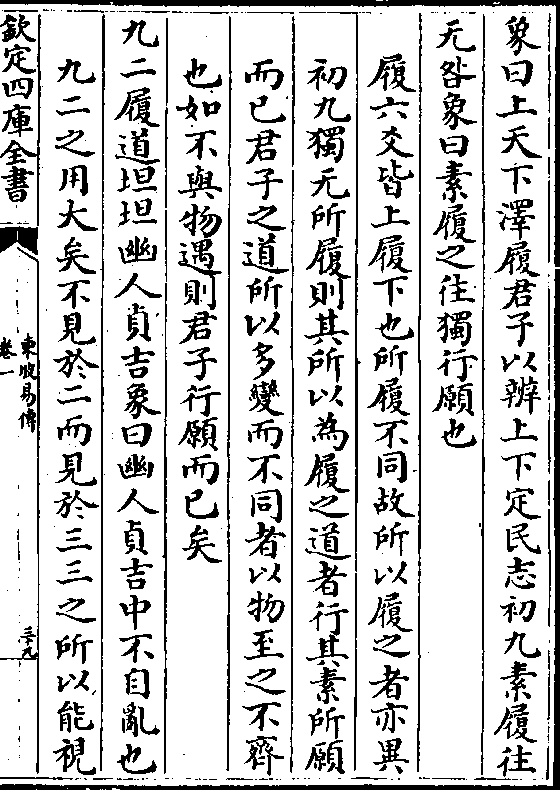 象曰上天下澤履君子以辨上下定民志初九素履往
无咎象曰素履之往獨行願也
履六爻皆上履下也所履不同故所以履之者亦異
初九獨无所履則其所以為履之道者行其素所願
而已君子之道所以多變而不同者以物至之不齊
也如不與物遇則君子行願而已矣
九二履道坦坦幽人貞吉象曰幽人貞吉中不自亂也
九二之用大矣不見於二而見於三三之所以能視
欽定四庫全書
東坡易傳
卷一
三十九